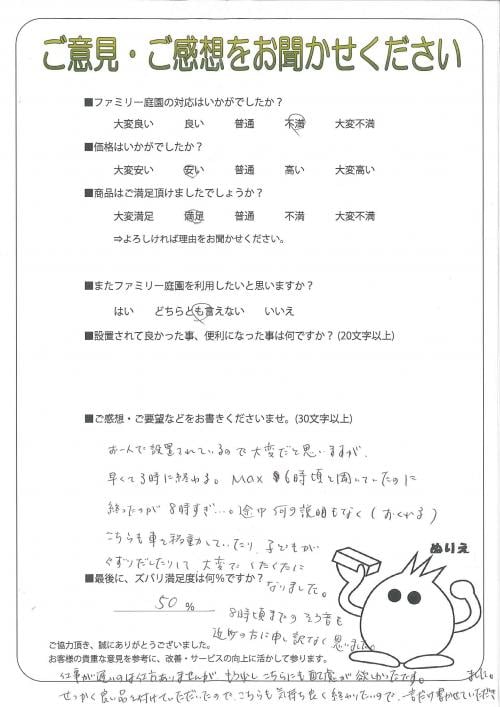 ご意見・ご感想をお聞かせください
■ファミリー庭園の対応はいかがでしたか?
大変良い 良い 普通 不満 大変不満
■価格はいかがでしたか?
大変安い 安い 普通 高い 大変高い
■商品はご満足頂けましたでしょうか?
大変満足 満足 普通 不満 大変不満
⇒よろしければ理由をお聞かせください。
■またファミリー庭園を利用したいと思いますか?
はい どちらとも言えない いいえ
■設置されて良かった事、便利になった事は何ですか?(20文字以上)
■ご感想・ご要望などをお書きくださいませ。(30文字以上)
お一人で設置されているので大変だと思いますが、
早くて3時に終わる。MAX 6時頃と聞いていたのに
終ったのが8時すぎ…。途中何の説明もなく(おくれる)
こちらも車を移動していたり、子どもが
ぐずりだしたりして、大変でくたくたに
なりました。
ぬりえ
■最後に、ズバリ満足度は何%ですか?
50 %
8時頃までのそう音も
近所の方に申し訳なく思いました。
ご協力頂き、誠にありがとうございました。
お客様の貴重な意見を参考に、改善・サービスの向上に活かして参ります。
仕事が遅いのは仕方ありませんが、もう少しこちらにも配慮が欲しかったです。
せっかく良い品を付けていただいたので、こちらも気持ち良く終わりたいので、一言だけ書かせていただき
ました。